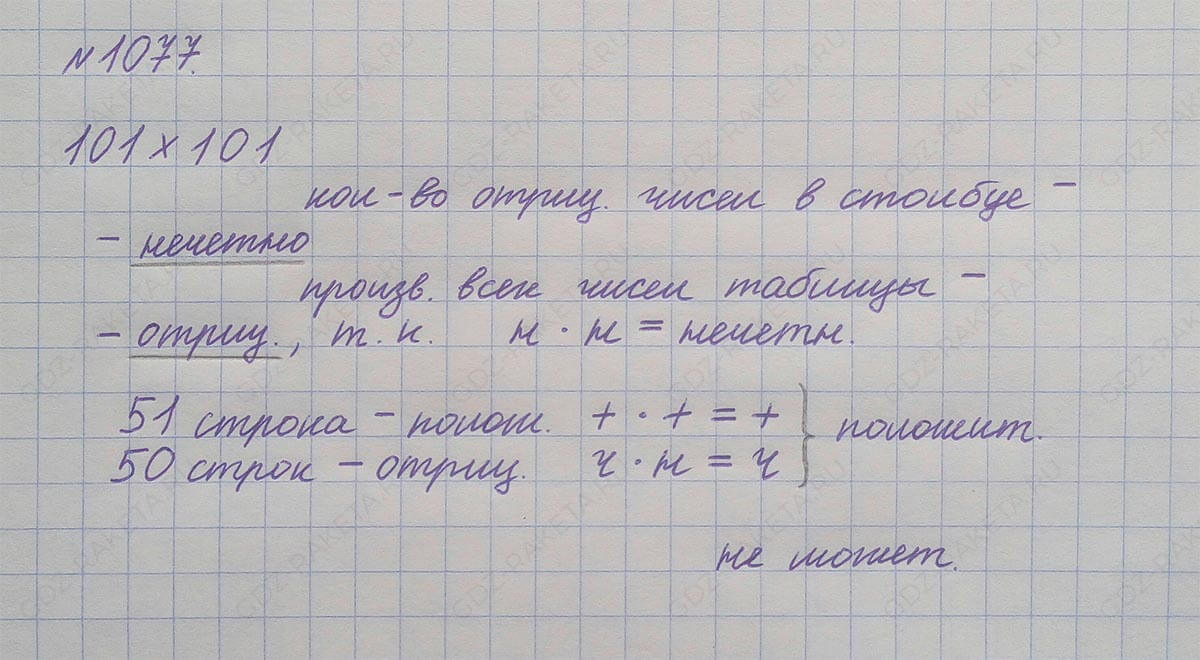 №1077.
101 × 101
кол-во отриц. чисел в столбце –
– нечетно
произв. всех чисел таблицы –
– отриц., т.к. н · н = нечетн.
51 строка – полож. + · + = + } положит.
50 строк – отриц. ч · н = ч
не может.
GDZ-RAKETA.RU